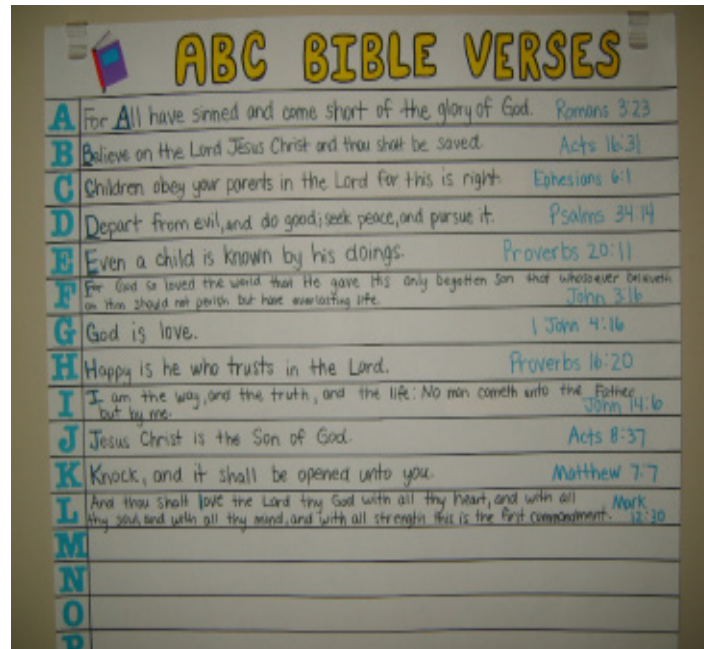 ABC BIBLE VERSES
A For All have sinned and come short of the glory of God. Romans 3:23
B Believe on the Lord Jesus Christ and thou shalt be saved. Acts 16:31
C Children obey your parents in the Lord for this is right. Ephesians 6:1
D Depart from evil, and do good; seek peace, and pursue it. Psalms 34:14
E Even a child is known by his doings. Proverbs 20:11
F For God so loved the world that He gave His only begotten Son that whosoever believeth
on Him should not perish but have everlasting life. John 3:16
G God is love. 1 John 4:16
H Happy is he who trusts in the Lord. Proverbs 16:20
I I am the way, and the truth, and the life: No man cometh unto the Father
but by me. John 14:6
J Jesus Christ is the Son of God. Acts 8:37
K Knock, and it shall be opened unto you. Matthew 7:7
L And thou shalt love the Lord thy God with all thy heart, and with all Mark
thy soul, and with all thy mind, and with all strength this is the first commandment. 12:30
M
N
O
P